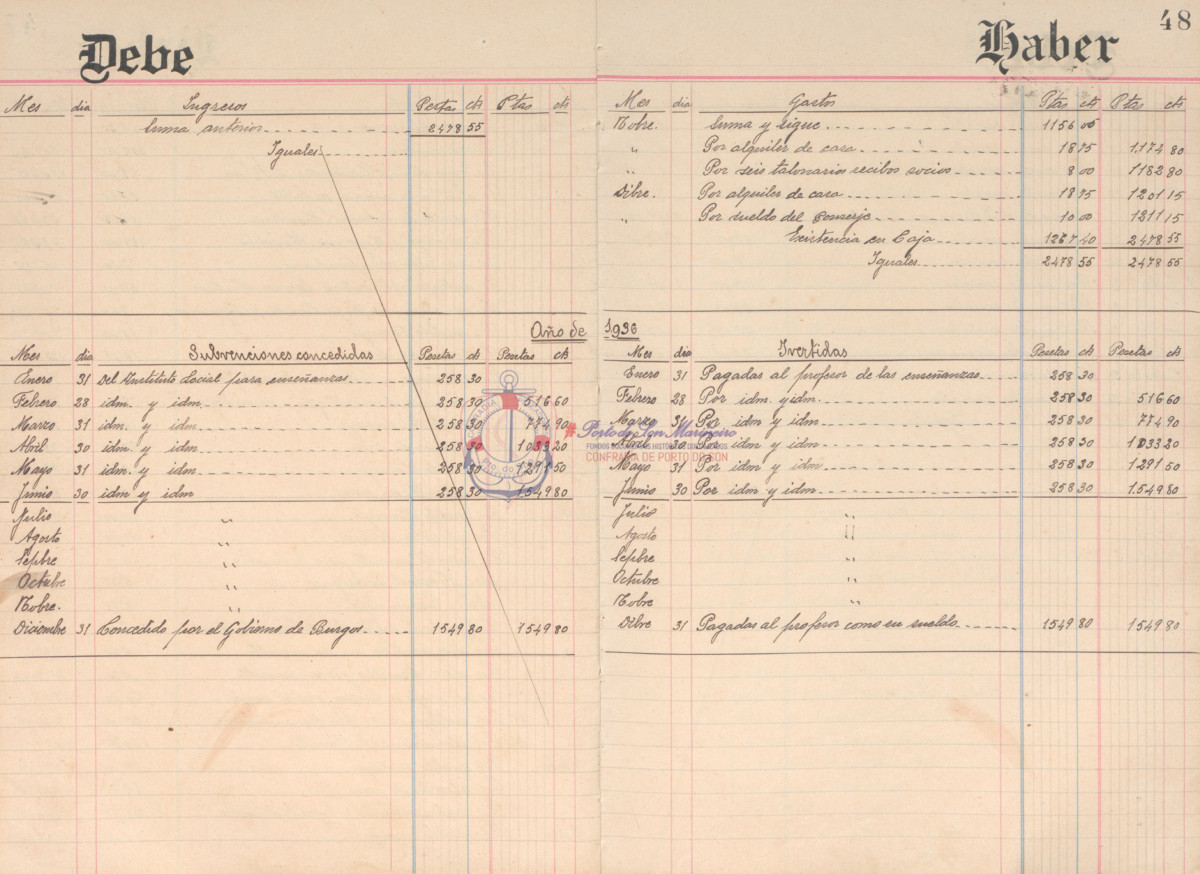 Debe
Mes dia Ingresos Pesetas cts Ptas cts
Suma anterior 2478 55
Iguales
Haber 48
Mes dia Gastos Ptas cts Ptas cts
Nobre. Suma y sigue 1156 05
" Por alquiler de casa 18 75 1174 80
" Por seis talonarios recibos socios 8 00 1182 80
Dibre. Por alquiler de casa 18 35 1201 15
" Por sueldo del Conserje 10 00 1211 15
Existencia en Caja 1267 40 2478 55
Iguales 2478 55 2478 55
Año de 1936
Mes dia Subvenciones concedidas Pesetas cts Pesetas cts
Enero 31 Del Instituto Social para enseñanzas 258 30
Febrero 28 idm. y idm. 258 30 516 60
Marzo 31 idm. y idm 258 30 774 90
Abril 30 idm. y idm 258 30 1033 20
Mayo 31 idm. y idm 258 30 1291 50
Junio 30 idm y idm 258 30 1549 80
Julio "
Agosto "
Sepbre "
Octubre "
Nobre. "
Diciembre 31 Concedido por el Gobierno de Burgos 1549 80 1549 80
Mes dia Ivertidas Pesetas cts Pesetas cts
Enero 31 Pagadas al profesor de las enseñanzas 258 30
Febrero 28 Por idm. y idm. 258 30 516 60
Marzo 31 Por idm y idm 258 30 774 90
Abril 30 Por idm y idm 258 30 1033 20
Mayo 31 Por idm y idm 258 30 1291 50
Junio 30 Por idm y idm 258 30 1549 80
Julio "
Agosto "
Sepbre "
Octubre "
Nobre "
Dibre 31 Pagadas al profesor como su sueldo 1549 80 1549 80
#Porto do Son Marineiro
CONFRARÍA DE PORTO DO SON